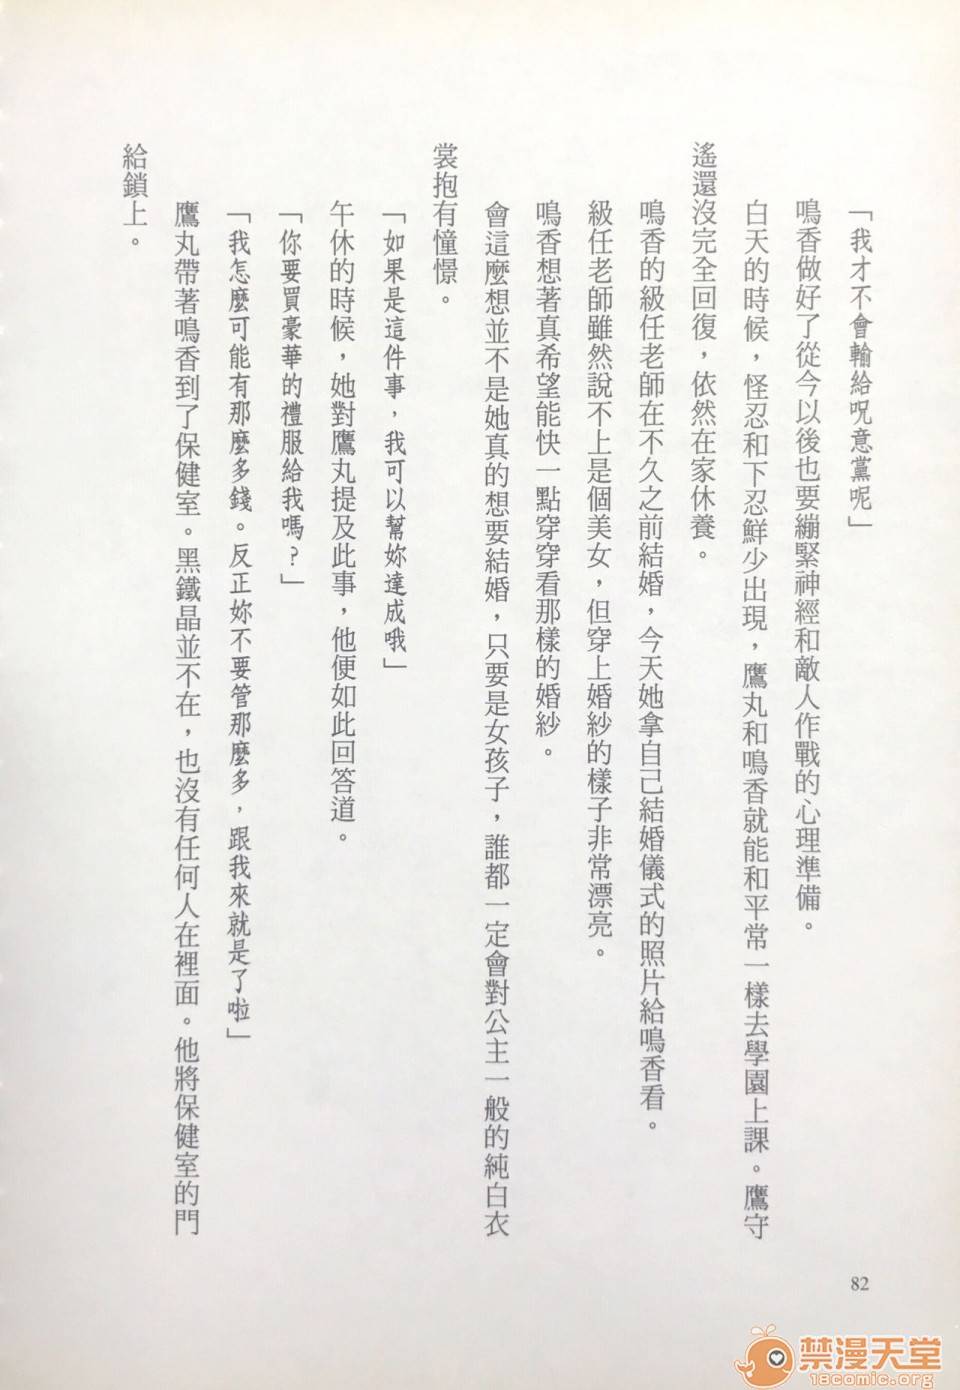 「我才不會輸給呪意黨呢」
鳴香做好了從今以後也要繃緊神經和敵人作戰的心理準備。
白天的時候，怪忍和下忍鮮少出現，鷹丸和鳴香就能和平常一樣去學園上課。鷹守
遙還沒完全回復，依然在家休養。
鳴香的級任老師在不久之前結婚，今天她拿自己結婚儀式的照片給鳴香看。
級任老師雖然說不上是個美女，但穿上婚紗的樣子非常漂亮。
鳴香想著真希望能快一點穿穿看那樣的婚紗。
會這麼想並不是她真的想要結婚，只要是女孩子，誰都一定會對公主一般的純白衣
裳抱有憧憬。
「如果是這件事，我可以幫妳達成哦」
午休的時候，她對鷹丸提及此事，他便如此回答道。
「你要買豪華的禮服給我嗎？」
「我怎麼可能有那麼多錢。反正妳不要管那麼多，跟我來就是了啦」
鷹丸帶著鳴香到了保健室。黑鐵晶並不在，也沒有任何人在裡面。他將保健室的門
給鎖上。
82
禁漫天堂
18comic.org